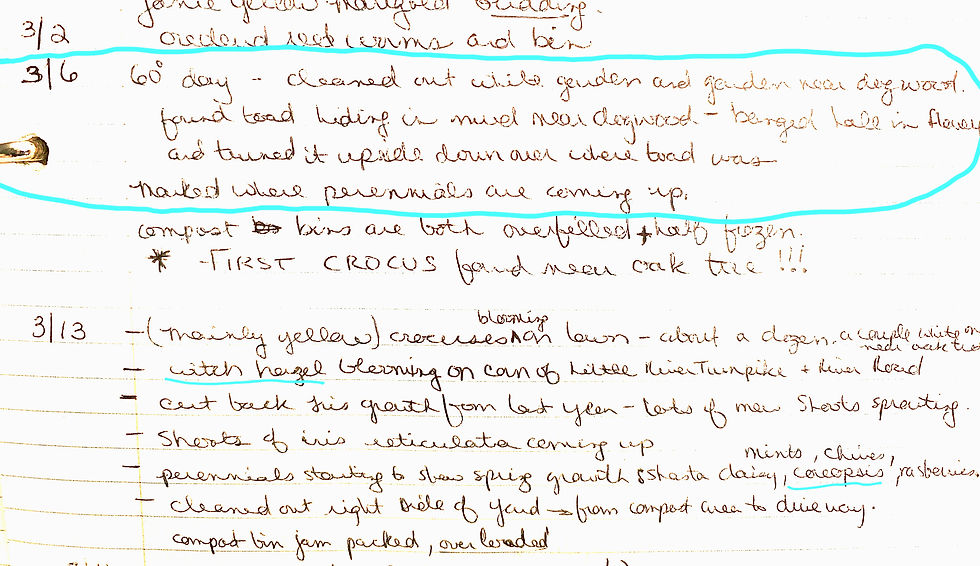 some yellow marigold budding.
3/2 ordered red worms and bin
3/6 60° day - cleaned out white garden and garden near dogwood.
found toad hiding in mud near dogwood - banged hole in flower
and turned it upside down over where toad was
marked where perennials are coming up.
compost bins are both overfilled + half frozen.
* FIRST CROCUS found near oak tree !!!
3/13 - (mainly yellow) crocuses blooming on lawn - about a dozen, a couple white on
near oak tree
- witch hazel blooming on corn of Little River Turnpike + River Road
- cut back iris growth from last year - lots of new shoots sprouting.
- shoots of iris reticulata coming up
mints, chives,
- perennials starting to show spring growth shasta daisy, coreopsis, rasberries
- cleaned out right side of yard → from compost area to driveway.
compost bin jam packed, overloaded